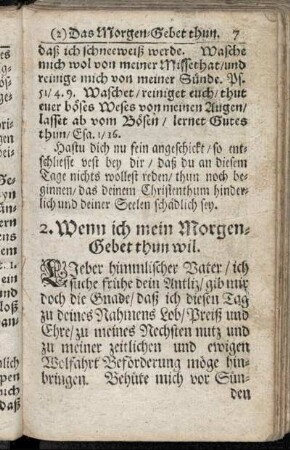 (2) Das Morgen-Gebet thun. 7
daß ich schneeweiß werde. Wasche
mich wol von meiner Missethat/und
reinige mich von meiner Sünde. Ps.
51/4. 9. Waschet/reiniget euch/thut
euer böses Weses von meinen Augen/
lasset ab vom Bösen/lernet Gutes
thun/Esa. 1/16.
Hastu dich nu fein angeschickt/so ent-
schliesse vest bey dir/daß du an diesem
Tage nichts wollest reden/thun noch be-
ginnen/das deinem Christenthum hinder-
lich und deiner Seelen schädlich sey.
2. Wenn ich mein Morgen-
Gebet thun wil.
LIeber himmlischer Vater/ich
suche frühe dein Antliz/gib mir
doch die Gnade/daß ich diesen Tag
zu deines Nahmens Lob/Preiß und
Ehre/zu meines Nechsten nutz und
zu meiner zeitlichen und ewigen
Wolfahrt Beförderung möge hin-
bringen. Behüte mich vor Sün-
den